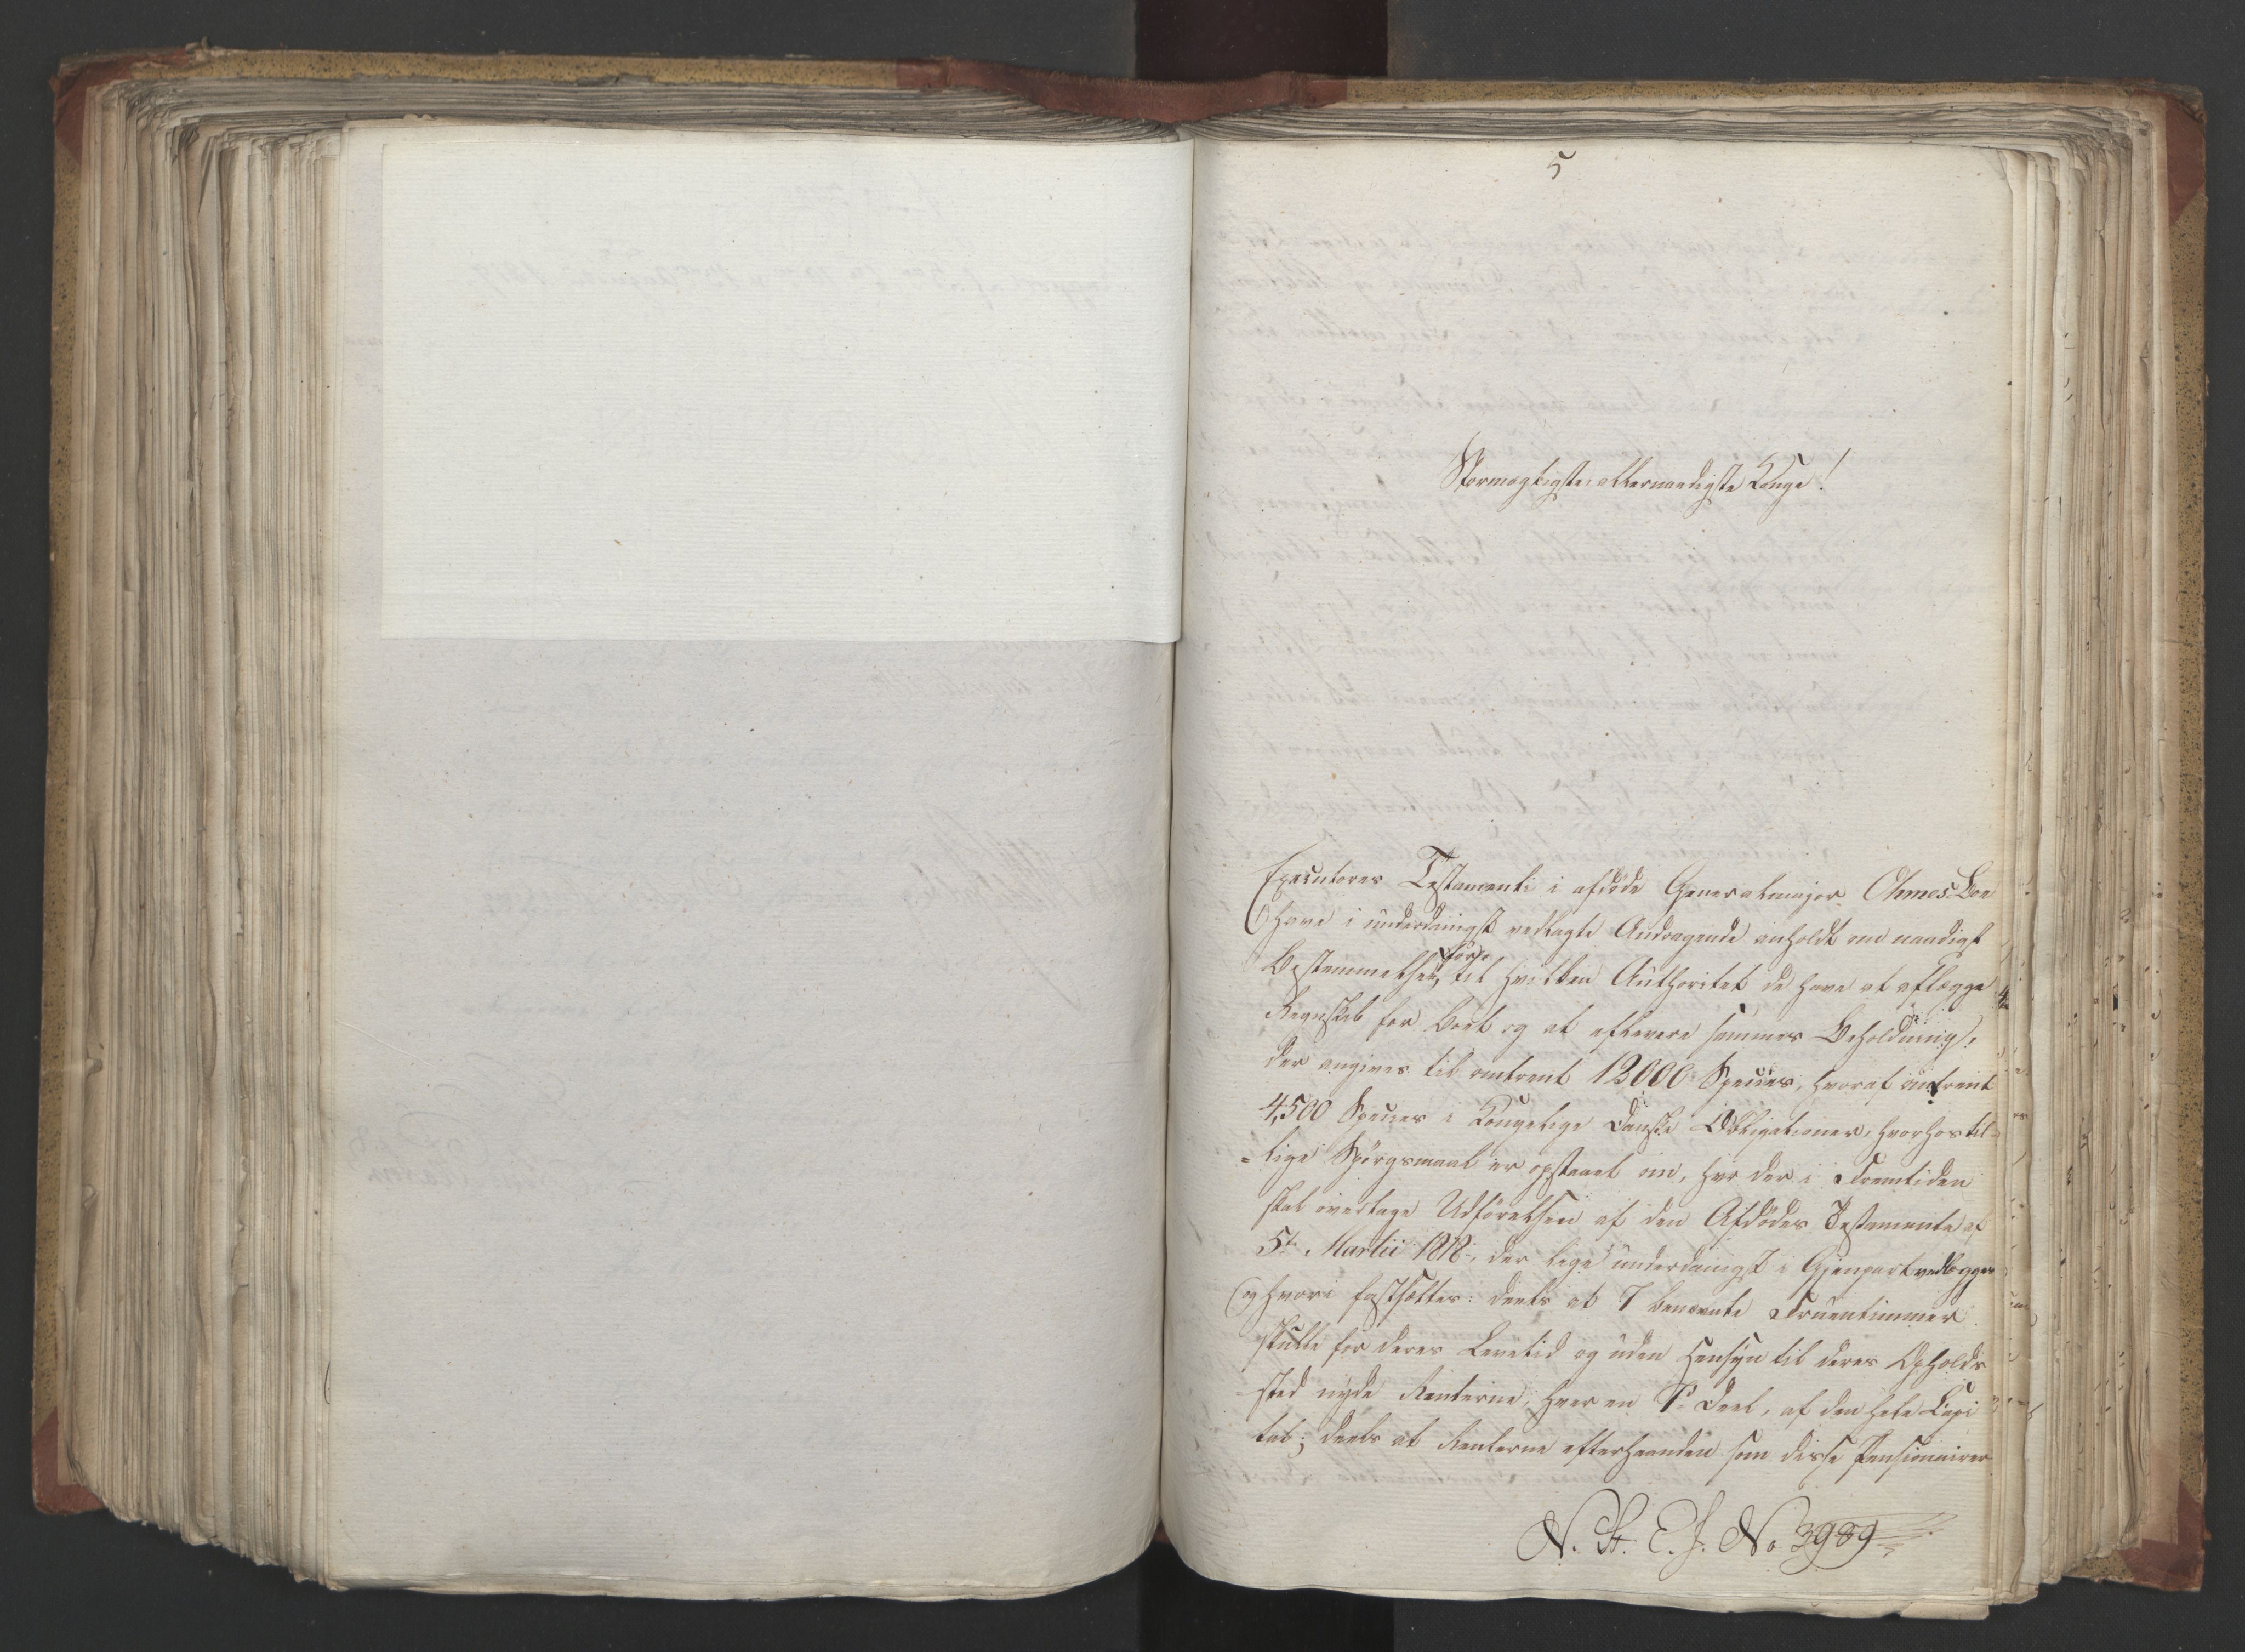 5
Stormægtigste, allernaadigste Konge!
Executores Testamenti i afdøde Generalmajor Ohmes Boe
have i underdanigst vedlagte Andragende anholdt om naadigst
Bestemmelse for, til hvilken Authoritet de have at aflægge
Regnskab for Boet og at aflevere sammes Beholdning,
der angives til omtrent 12000 Species, hvoraf omtrent
4,500 Species i Kongelige Danske Obligationer, hvorhos til-
-lige Spørgsmaal er opstaaet om, hvo der i Fremtiden
skal overtage Udførelsen af den Afdødes Testamente af
5te Martii 1818, der lige underdanigst i Gjenpart vedlægges
og hvori fastsættes: deels at 7 benævnte Fruentimmer
skulle for deres Levetid og uden Hensyn til deres Opholds
sted nyde Renterne, hver en Deel, af den hele Capi
tal; deels at Renterne efterhaanden som disse Pensionairer
N. St. E. J. No 3989